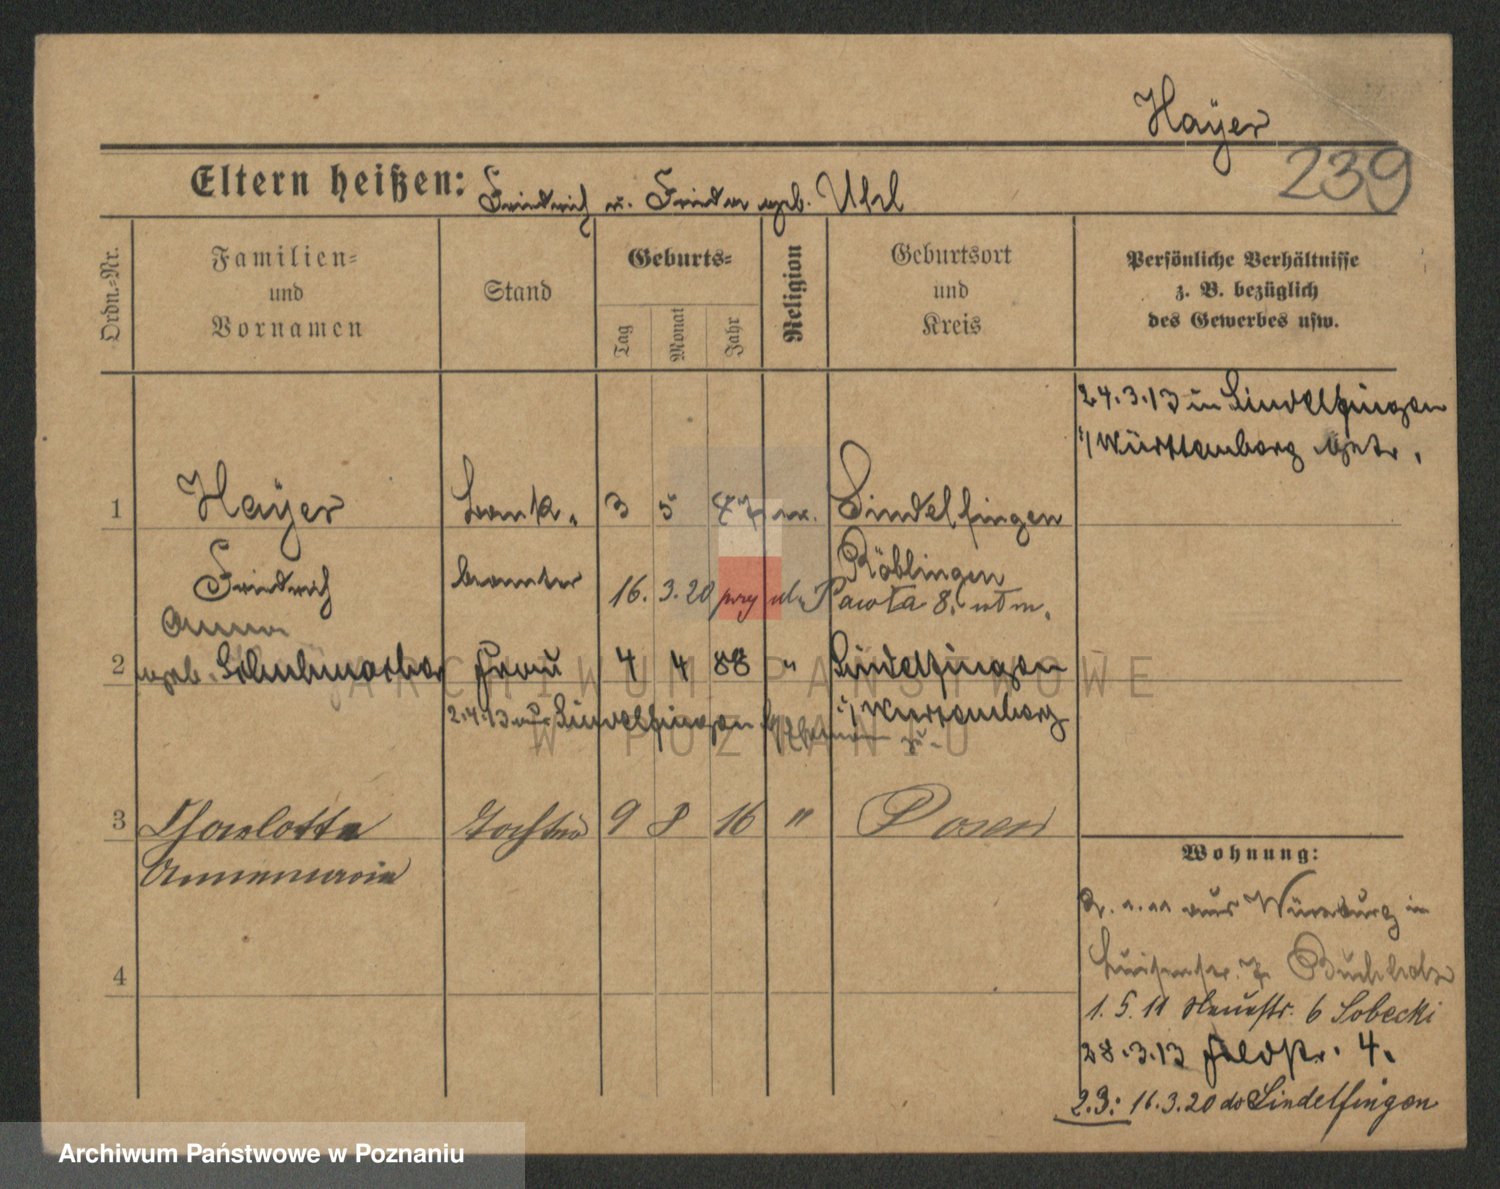 Hayer
239
Eltern heißen: Friedrich u. Frieder geb. Uhl
Ordn.-Nr.
Familien-
und
Vornamen
Stand
Geburts-
Tag
Monat
Jahr
Religion
Geburtsort
und
Kreis
Persönliche Verhältnisse
z. B. bezüglich
des Gewerbes usw.
24.3.13 in Sindelfingen
i/ Württemberg getr.
1 Hayer Bank- 3 5 Sindelfingen
Friedrich beamter Böblingen
16. 3. 20 przy ul. 8.
Anna
2 geb. Schuhmacher Frau 4 4 88 " Sindelfingen
2.4.13 aus Sindelfingen i/ Württemberg
3 Charlotte Tochter 9 8 16 " Posen
Annemarie
4
Wohnung:
aus Würzburg in
Luisenstr. Buchholz
1. 5. 11 Neuestr. 6 Sobecki
28.3.13 Feldstr. 4.
2.3: 16.3.20 do Sindelfingen
ARCHIWUM PAŃSTWOWE
W POZNANIU
Archiwum Państwowe w Poznaniu